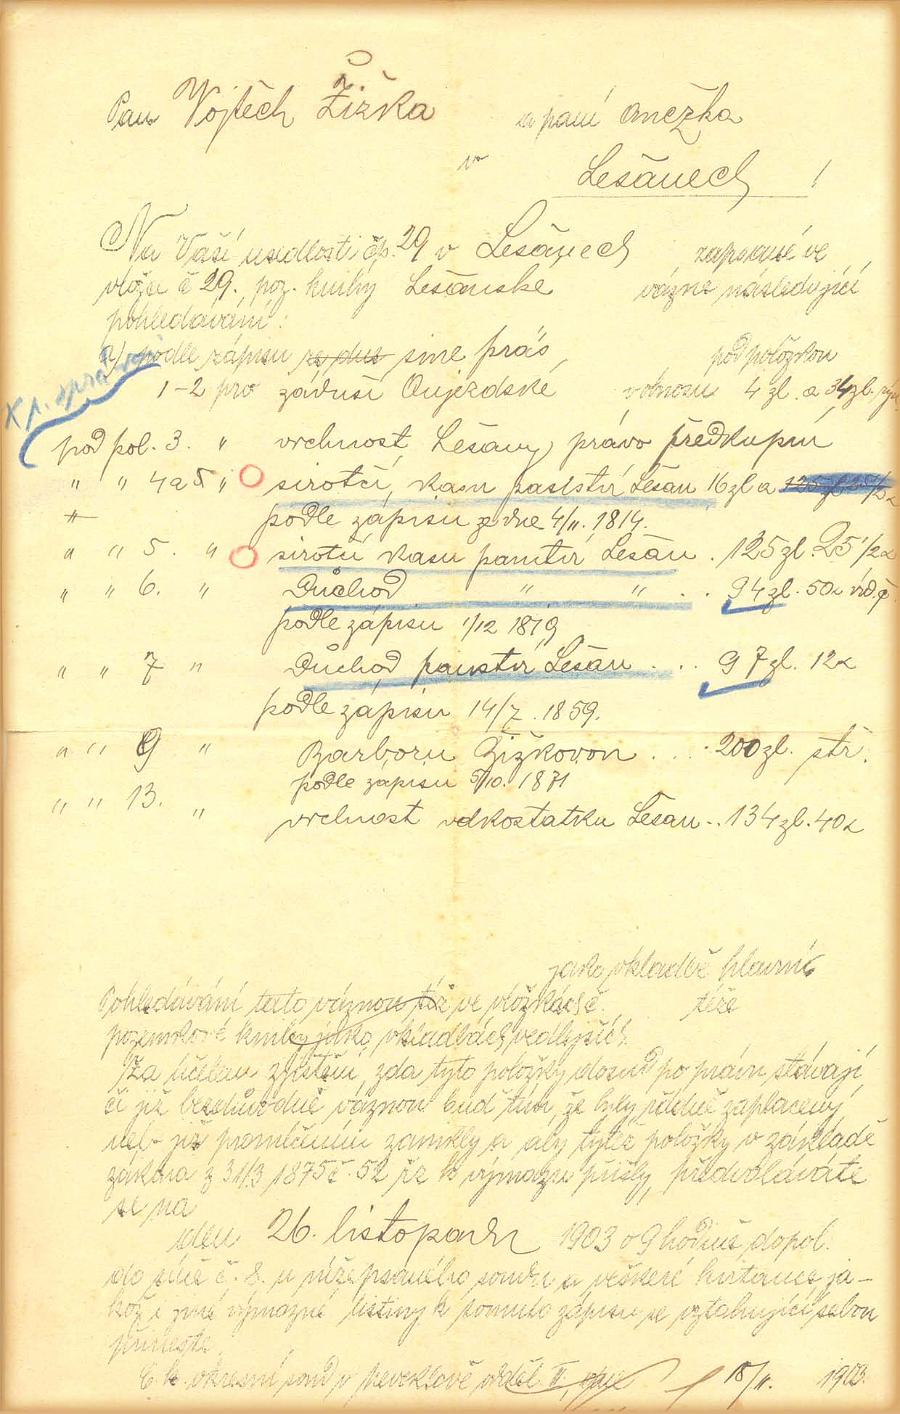 Pan Vojtěch Žižka a paní Anežka
v
Lešanech !
Na Vaší usedlosti čp. 29 v Lešanech zapsané ve
vložce č 29. poz. knihy Lešanské vázne následující
pohledávání:
a) podle zápisu ze dne sine präs, pod položkou
1-2 pro záduší Oujezdské v obnosu 4 zl. a 34 zl.
X p. správní
pod pol. 3. " vrchnost Lešany právo předkupní
" " 4 a 5 " sirotčí kasu panství Lešan 16 zl a
podle zápisu ze dne 4/11. 1814.
" " 5. " sirotčí kasu panství Lešan . 125 zl. 25 1/2
" " 6. " Důchod " " . . 94 zl. 50
podle zápisu 1/12 1819
" " 7 " Důchod panství Lešan . . . 97 zl. 12
podle zápisu 14/7. 1859.
" " 9 " Barboru Žižkovou . . . 200 zl. stř.
podle zápisu 5/10. 1871
" " 13. " vrchnost velkostatku Lešan . . 134 zl. 40
jako vkladbě hlavní
Pohledávání tato váznou též ve vložkách č. téže
pozemkové knihy jako vkladbách vedlejších.
Za účelem zjištění, zda tyto položky dosud po právu stávají
či již bezdůvodně váznou buď tím, že byly řádně zaplaceny
neb již promlčením zanikly a aby tytéž položky v základě
zákona z 31/3 1875 č. 52 řz k výmazu přišly, předvoláváte
se na
den 26. listopadu 1903 o 9 hodině dopol.
do síně č. 8. u níže psaného soudu a veškeré kvitance ja-
kož i jiné výmazné listiny k tomuto zápisu se vztahující sebou
přineste.
C. k. okresní soud v Neveklově odděl. II, 18/11. 1903.